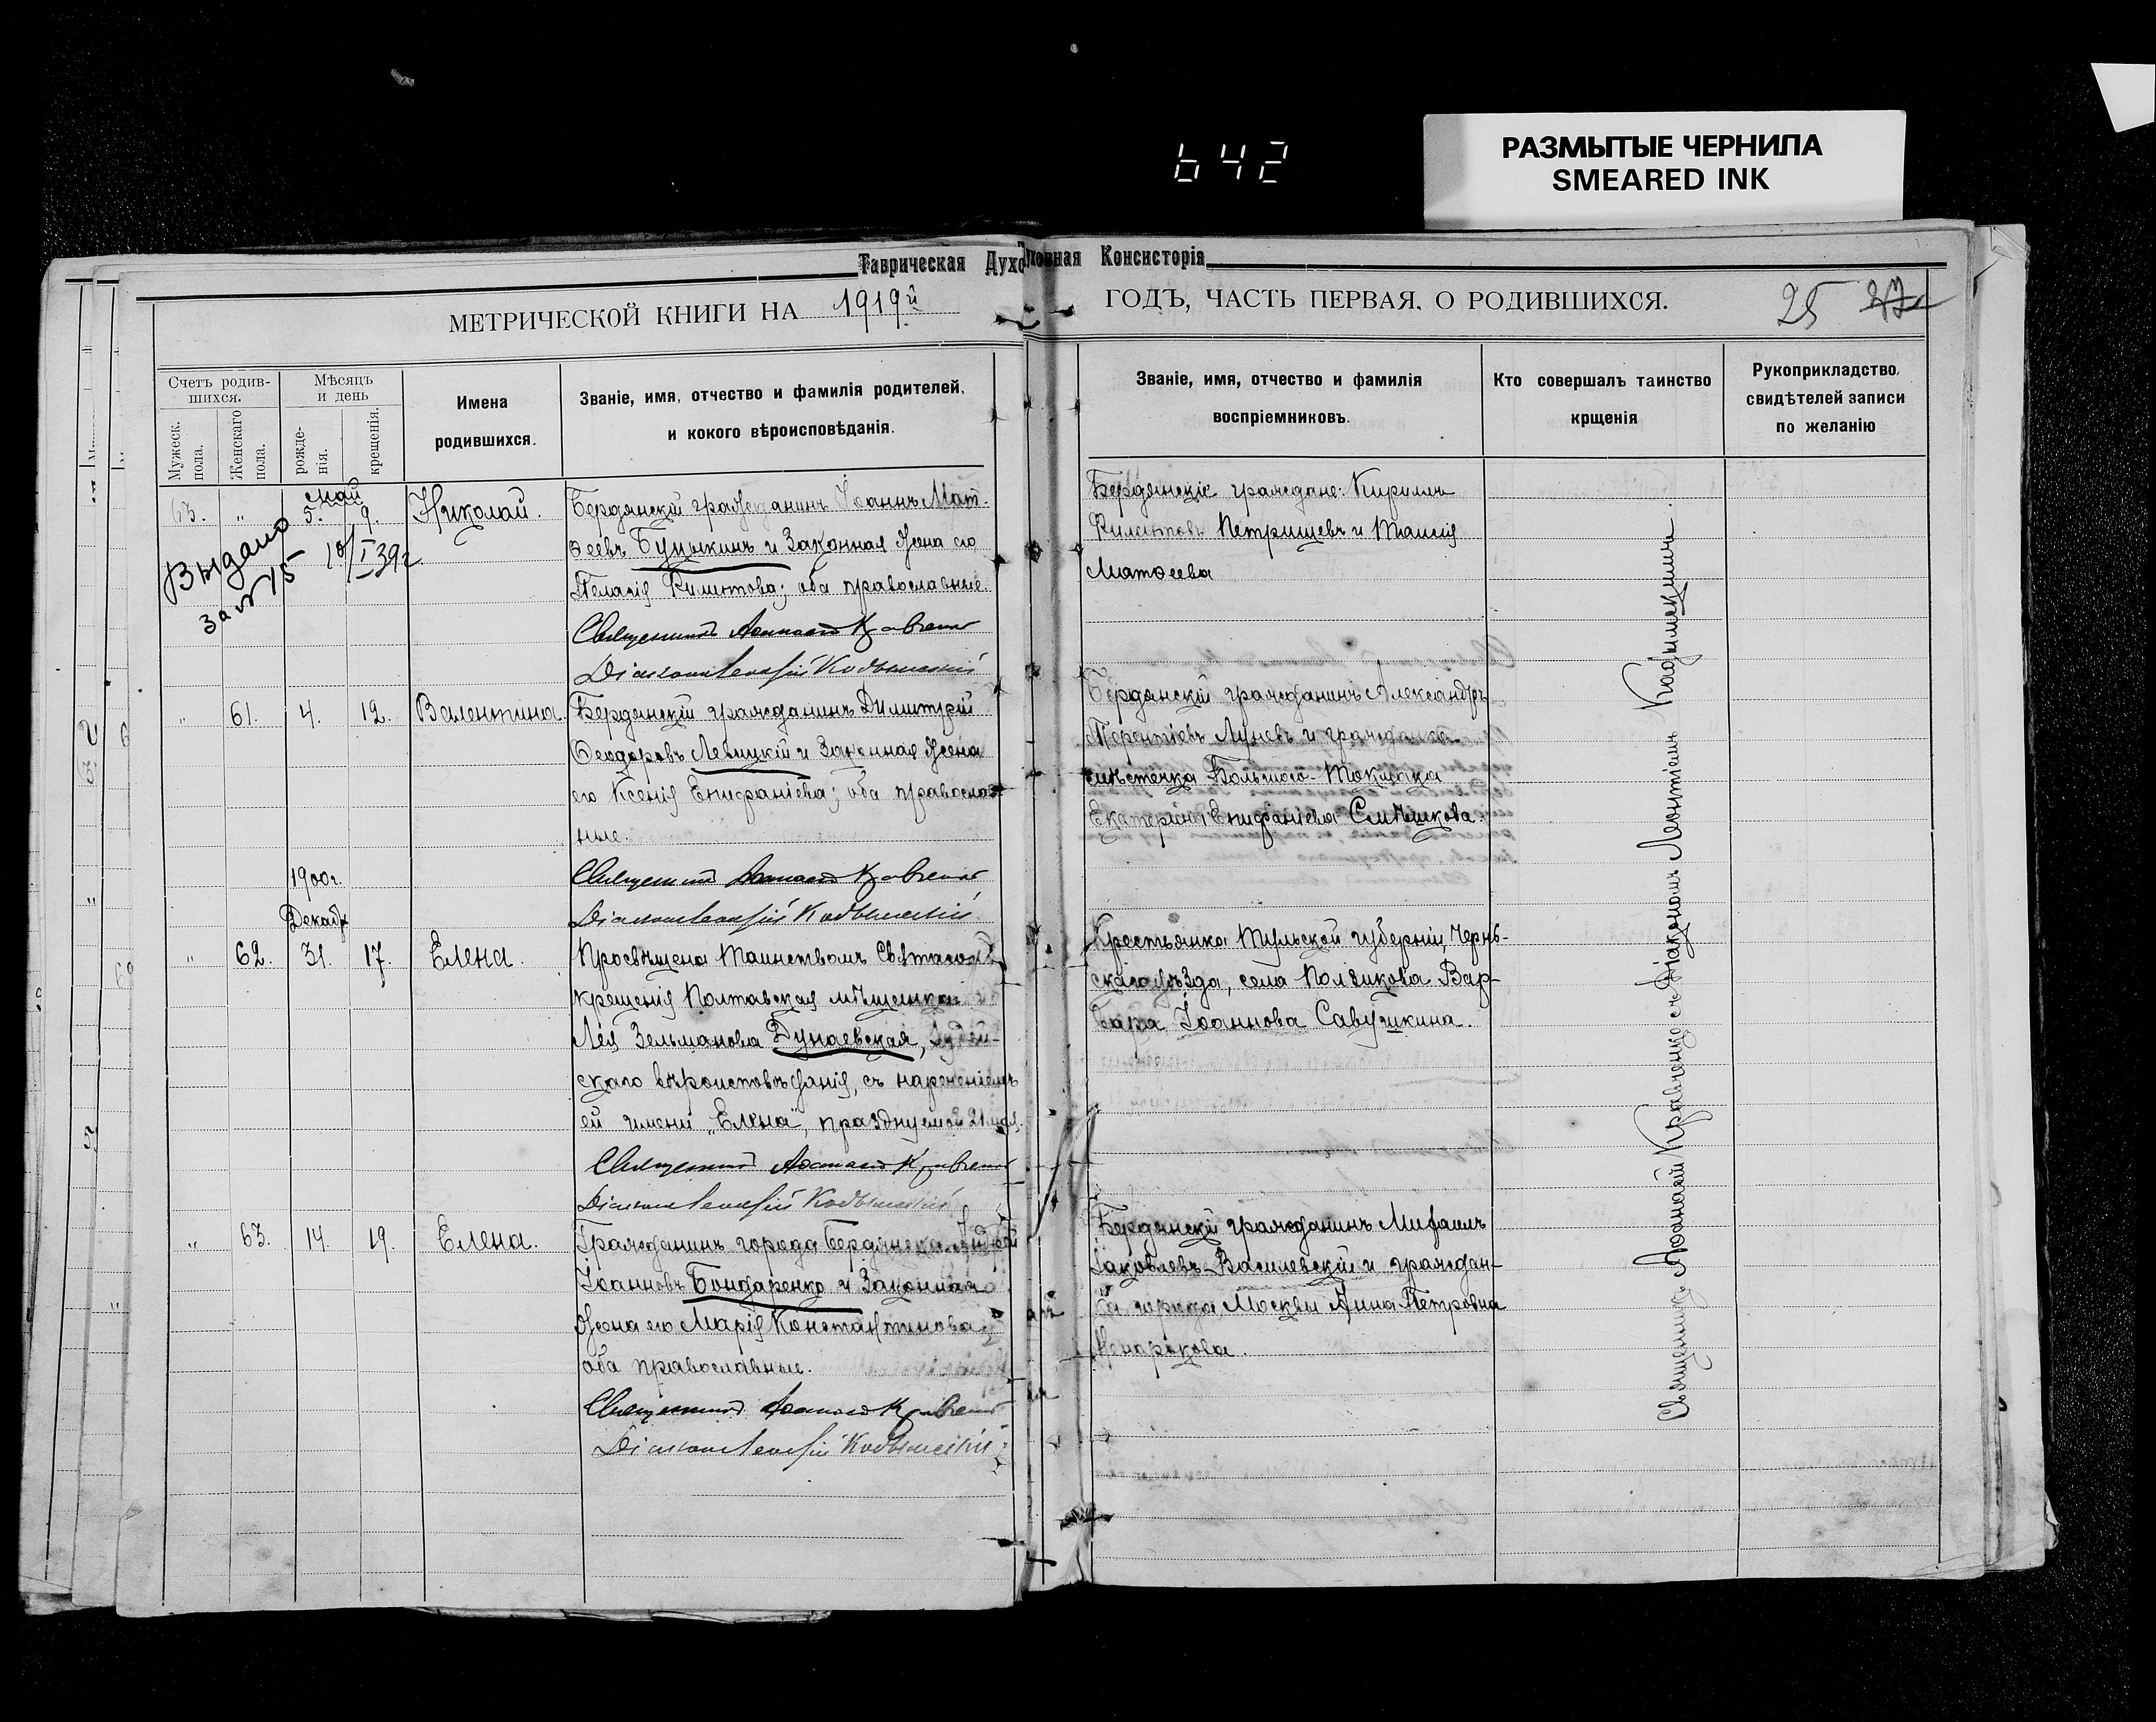 642
РАЗМЫТЫЕ ЧЕРНИЛА
SMEARED INK
Таврическая Духовная Консисторія
МЕТРИЧЕСКОЙ КНИГИ НА 1919й ГОДЪ, ЧАСТЬ ПЕРВАЯ. О РОДИВШИХСЯ.
25 27
Счетъ родив-
шихся.
Мужеск.
пола.
Женскаго
пола.
Мѣсяцъ
и день
рожде-
нія.
крещенія.
Имена
родившихся.
Званіе, имя, отчество и фамилія родителей,
и кокого вѣроисповѣданія.
Званіе, имя, отчество и фамилія
воспріемниковъ.
Кто совершалъ таинство
крщенія
Рукоприкладство
свидѣтелей записи
по желанію
Май
63. " 5. 9. Николай.
Бердянскій гражданинъ Іоаннъ Мат-
ѳеевъ Буцыкинъ и законная жена его
Пелагія Филиппова; оба православные.
Священникъ Аѳанасій Кравченко
Діаконъ Леонтій
Бердянскіе граждане: Кириллъ
Филипповъ Петрищевъ и Таисія
Матѳеева
Выдано
за № 15
10/I 39г.
" 61. 4. 12. Валентина.
Бердянскій гражданинъ Димитрій
Ѳеодоровъ Левицкій и законная жена
его Ксенія Епифаніева; оба православ-
ные.
Священникъ Аѳанасій Кравченко
Діаконъ Леонтій
Бердянскій гражданинъ Александръ
Терентіевъ Луневъ и гражданка
мѣстечка Большого-Токмака
Екатерина Епифаніева Смѣшкова.
1900г.
Декабр
" 62. 31. 17. Елена.
Просвѣщена Таинствомъ Святаго
крещенія Полтавская мѣщанка
Лея Зельманова Дунаевская, Іудей-
скаго вѣроисповѣданія, съ нареченіемъ
ей имени „Елена", празднуемой 21 мая.
Священникъ Аѳанасій Кравченко
Діаконъ Леонтій
Крестьянка Тульской губерніи, Чернь-
скаго уѣзда, села Ползикова Вар-
вара Іоаннова Савушкина.
" 63. 14. 19. Елена.
Гражданинъ города Бердянска Андрей
Іоанновъ Бондаренко и законная
жена его Марія Константинова;
оба православные.
Священникъ Аѳанасій Кравченко
Діаконъ Леонтій
Бердянскій гражданинъ Михаилъ
Іаковлевъ Василевскій и граждан-
ка города Москвы Анна Петровна
Священникъ Аѳанасій Кравченко съ Діакономъ Леонтіемъ